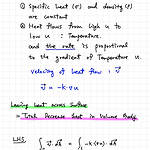 ① Specific heat (σ) and density (ρ)
are constant
② Heat flows from high u to
low u : Temperature.
and the rate is proportional
to the gradient of Temperature u.
velocity of heat flow : v⃗
v⃗ = -k·∇u
Leaving heat across surface
= Total Decrease heat in Volume Body.
LHS.
∫ v⃗·dA⃗ = ∫ -k (∇u)·dA⃗